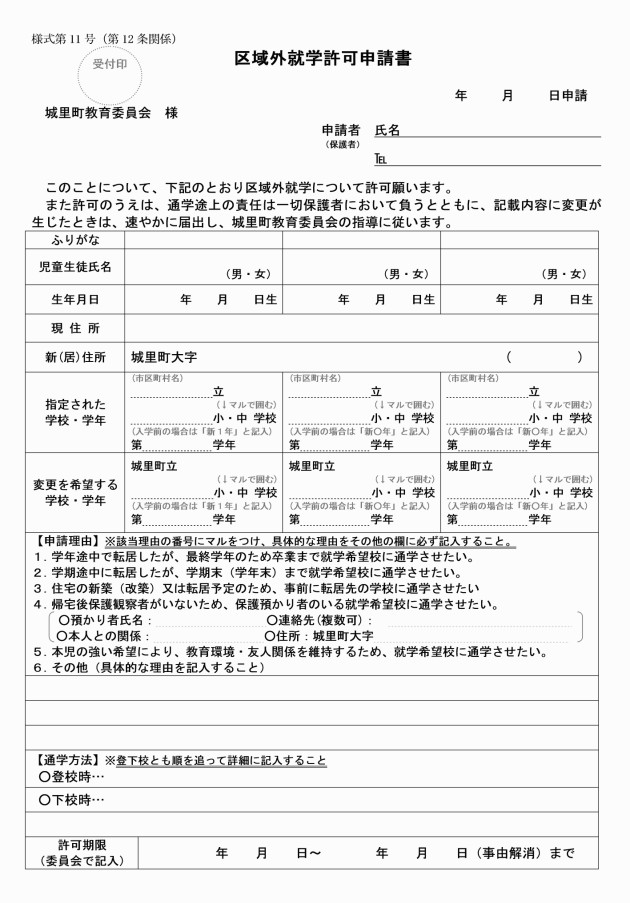 様式第11号（第12条関係）
受付印
区域外就学許可申請書
年　月　日申請
城里町教育委員会　様
申請者　氏名
（保護者）
℡
このことについて、下記のとおり区域外就学について許可願います。
また許可のうえは、通学途上の責任は一切保護者において負うとともに、記載内容に変更が
生じたときは、速やかに届出し、城里町教育委員会の指導に従います。
ふりがな
児童生徒氏名　（男・女）　（男・女）　（男・女）
生年月日　年　月　日生　年　月　日生　年　月　日生
現 住 所
新(居)住所　城里町大字　（　　　）
指定された
学校・学年
（市区町村名）　（市区町村名）　（市区町村名）
立　立　立
（↓マルで囲む）　（↓マルで囲む）　（↓マルで囲む）
小・中 学校　小・中 学校　小・中 学校
（入学前の場合は「新１年」と記入）　（入学前の場合は「新〇年」と記入）　（入学前の場合は「新〇年」と記入）
第　学年　第　学年　第　学年
変更を希望する
学校・学年
城里町立　城里町立　城里町立
（↓マルで囲む）　（↓マルで囲む）　（↓マルで囲む）
小・中 学校　小・中 学校　小・中 学校
（入学前の場合は「新１年」と記入）　（入学前の場合は「新〇年」と記入）　（入学前の場合は「新〇年」と記入）
第　学年　第　学年　第　学年
【申請理由】※該当理由の番号にマルをつけ、具体的な理由をその他の欄に必ず記入すること。
１. 学年途中で転居したが、最終学年のため卒業まで就学希望校に通学させたい。
２. 学期途中に転居したが、学期末（学年末）まで就学希望校に通学させたい。
３. 住宅の新築（改築）又は転居予定のため、事前に転居先の学校に通学させたい
４. 帰宅後保護観察者がいないため、保護預かり者のいる就学希望校に通学させたい。
〇預かり者氏名：　〇連絡先(複数可)：
〇本人との関係：　〇住所：城里町大字
５. 本児の強い希望により、教育環境・友人関係を維持するため、就学希望校に通学させたい。
６. その他（具体的な理由を記入すること）
【通学方法】※登下校とも順を追って詳細に記入すること
〇登校時…
〇下校時…
許可期限
（委員会で記入）
年　月　日～　年　月　日（事由解消）まで